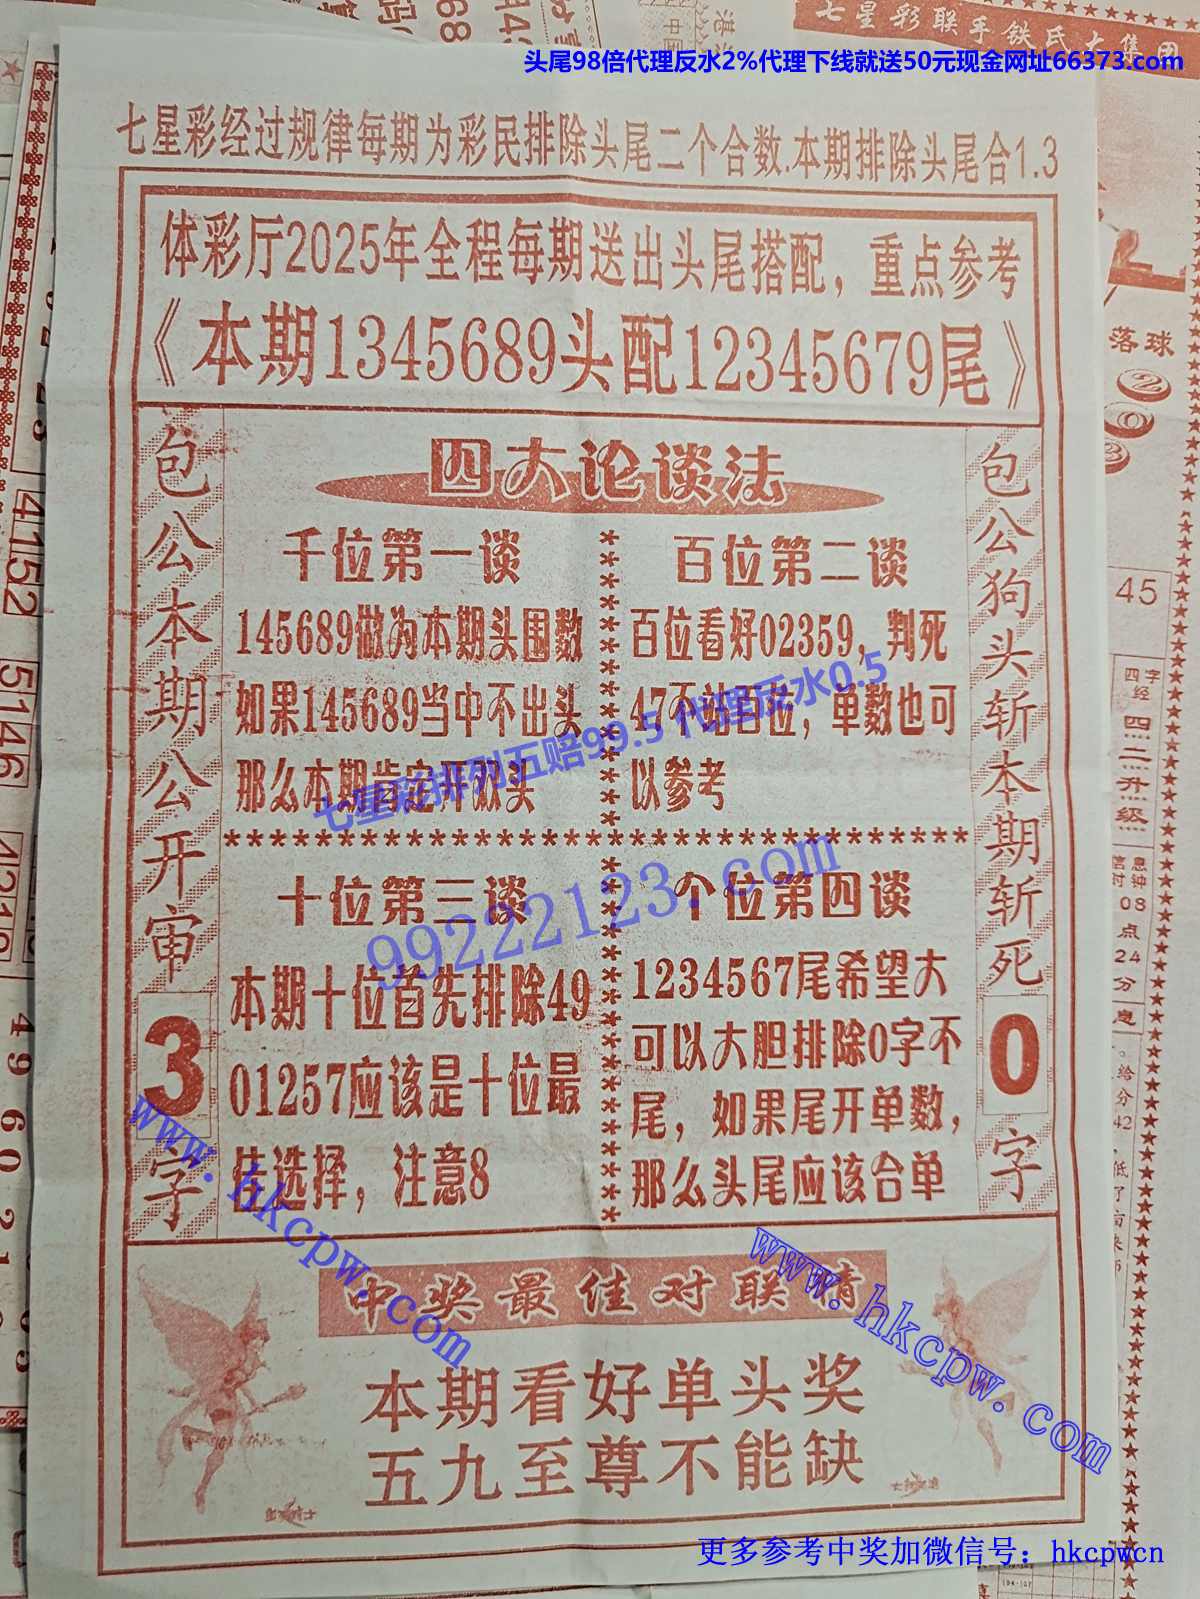 七星彩联手铁氏大集团
头尾98倍代理反水2%代理下线就送50元现金网址66373.com
七星彩经过规律每期为彩民排除头尾二个合数.本期排除头尾合1.3
体彩厅2025年全程每期送出头尾搭配，重点参考
《本期1345689头配12345679尾》
包公本期公开审3字
四大论谈法
千位第一谈
145689做为本期头围数
如果145689当中不出头
那么本期肯定开双头
百位第二谈
百位看好02359，判死
47不站百位，单数也可
以参考
七星彩排列五赔99.5 代理反水0.5
99222123.com
十位第三谈
本期十位首先排除49
01257应该是十位最
佳选择，注意8
个位第四谈
1234567尾希望大
可以大胆排除0字不
尾，如果尾开单数，
那么头尾应该合单
包公狗头斩本期斩死0字
www.hkcpw.com
www.hkcpw.com
中奖最佳对联情
本期看好单头奖
五九至尊不能缺
更多参考中奖加微信号：hkcpwcn
落球
2
0
3
45
四字
四二升级
08点24分
4152
5146